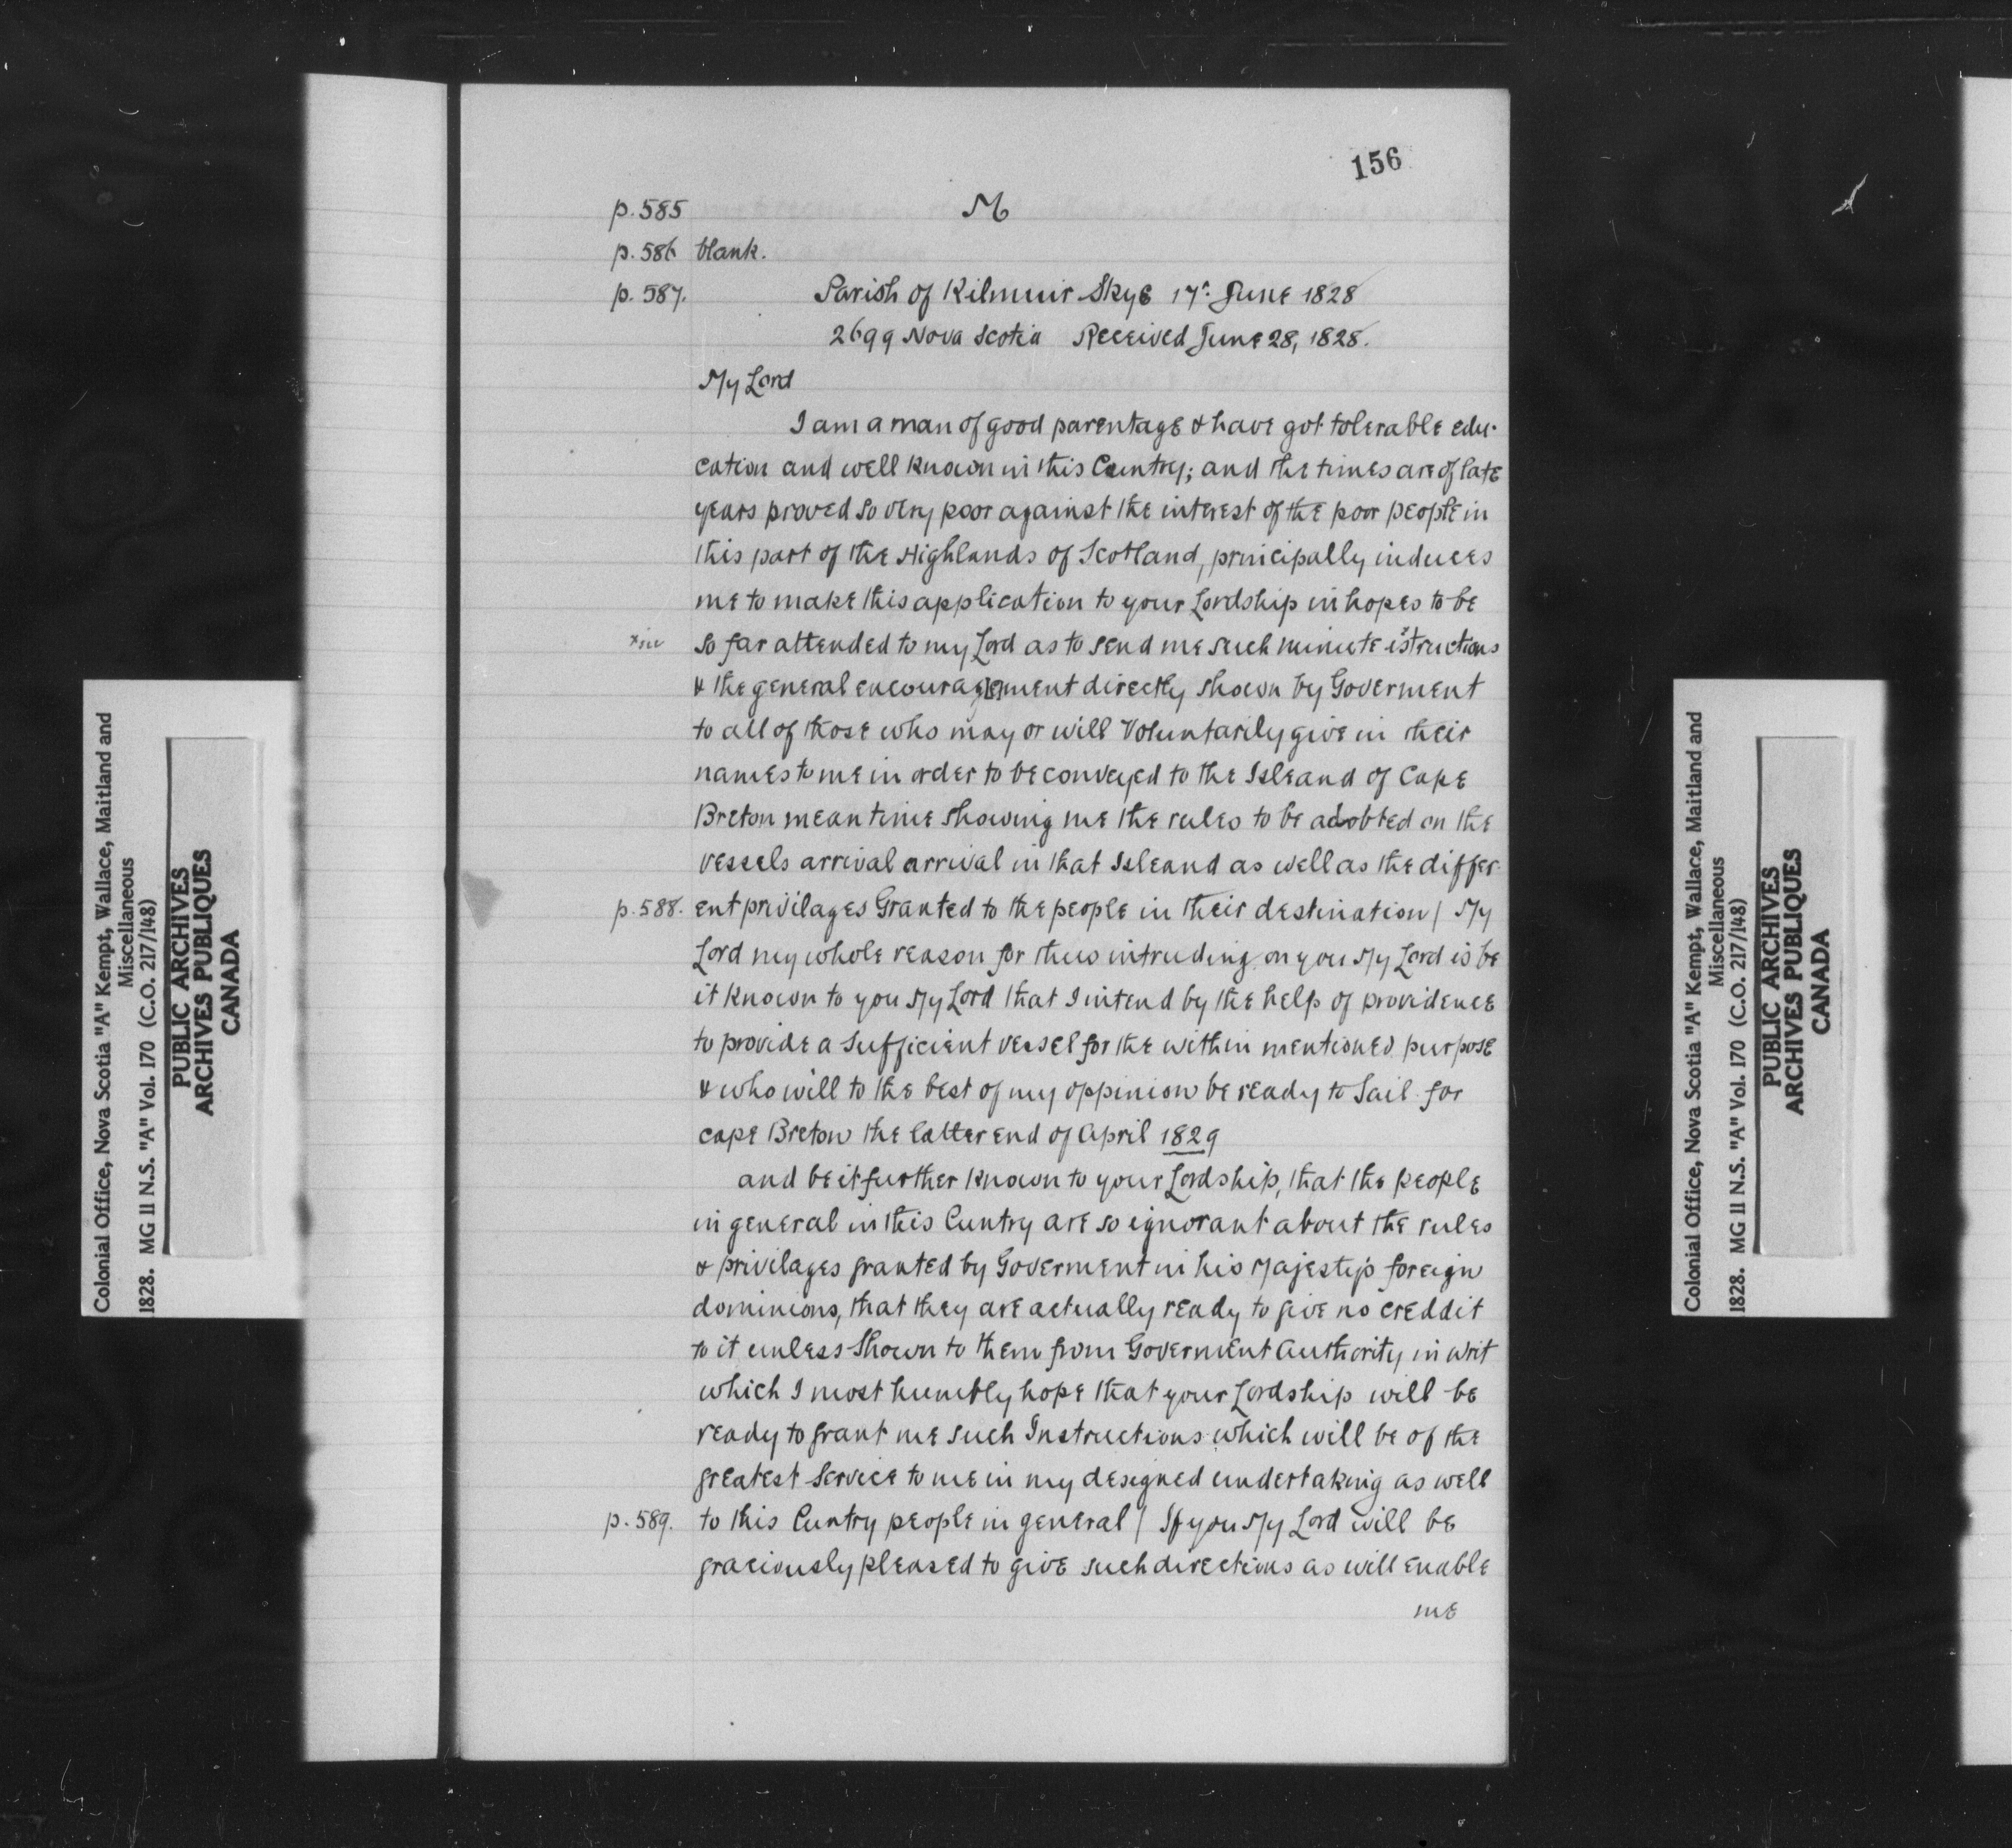 156
p. 585 M
p. 586 blank.
p. 587. Parish of Kilmuir Skye 17. June 1828
2699 Nova Scotia Received June 28, 1828.
My Lord
I am a man of good parentage & have got tolerable edu-
cation and well known in this Cuntry; and the times are of late
years proved so very poor against the interest of the poor people in
this part of the Highlands of Scotland, principally induces
me to make this application to your Lordship in hopes to be
so far attended to my Lord as to send me such minute istructions
& the general encouragement directly shown by Goverment
to all of those who may or will Voluntarily give in their
names to me in order to be conveyed to the Isleand of Cape
Breton meantime showing me the rules to be adobted on the
vessels arrival arrival in that Isleand as well as the differ-
p. 588. ent privilages Granted to the people in their destination / My
Lord my whole reason for thus intruding on you My Lord is be
it known to you My Lord that I intend by the help of providence
to provide a sufficient vessel for the within mentioned purpose
& who will to the best of my oppinion be ready to Sail for
cape Breton the latter end of April 1829
and be it further known to your Lordship, that the people
in general in this Cuntry are so ignorant about the rules
& privilages granted by Goverment in his Majesty's foreign
dominions, that they are actually ready to give no creddit
to it unless shown to them from Goverment Authority in writ
which I most humbly hope that your Lordship will be
ready to grant me such Instructions which will be of the
greatest Service to me in my designed undertaking as well
p. 589. to this Cuntry people in general / If you My Lord will be
graciously pleased to give such directions as will enable
me
Colonial Office, Nova Scotia "A" Kempt, Wallace, Maitland and
Miscellaneous
1828. MG 11 N.S. "A" Vol. 170 (C.O. 217/148)
PUBLIC ARCHIVES
ARCHIVES PUBLIQUES
CANADA
Colonial Office, Nova Scotia "A" Kempt, Wallace, Maitland and
Miscellaneous
1828. MG 11 N.S. "A" Vol. 170 (C.O. 217/148)
PUBLIC ARCHIVES
ARCHIVES PUBLIQUES
CANADA